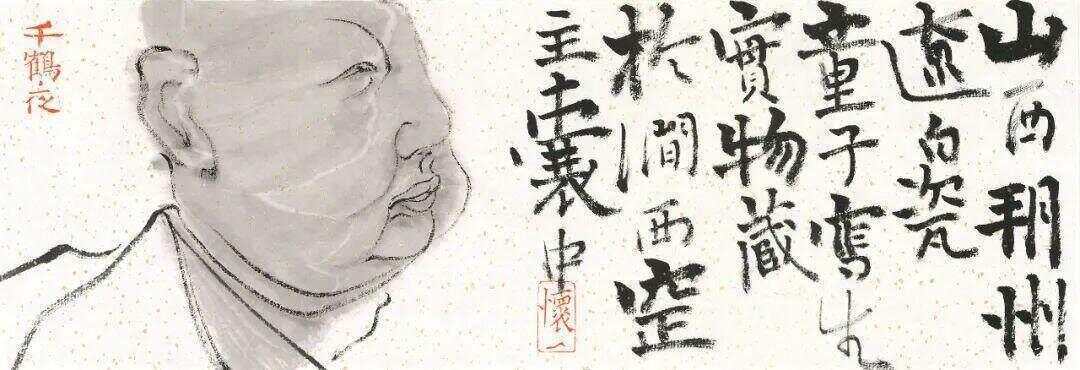 山西朔州
遼白瓷
童子寫生
實物藏
於澗西空
主囊中
懷一
千鶴夜